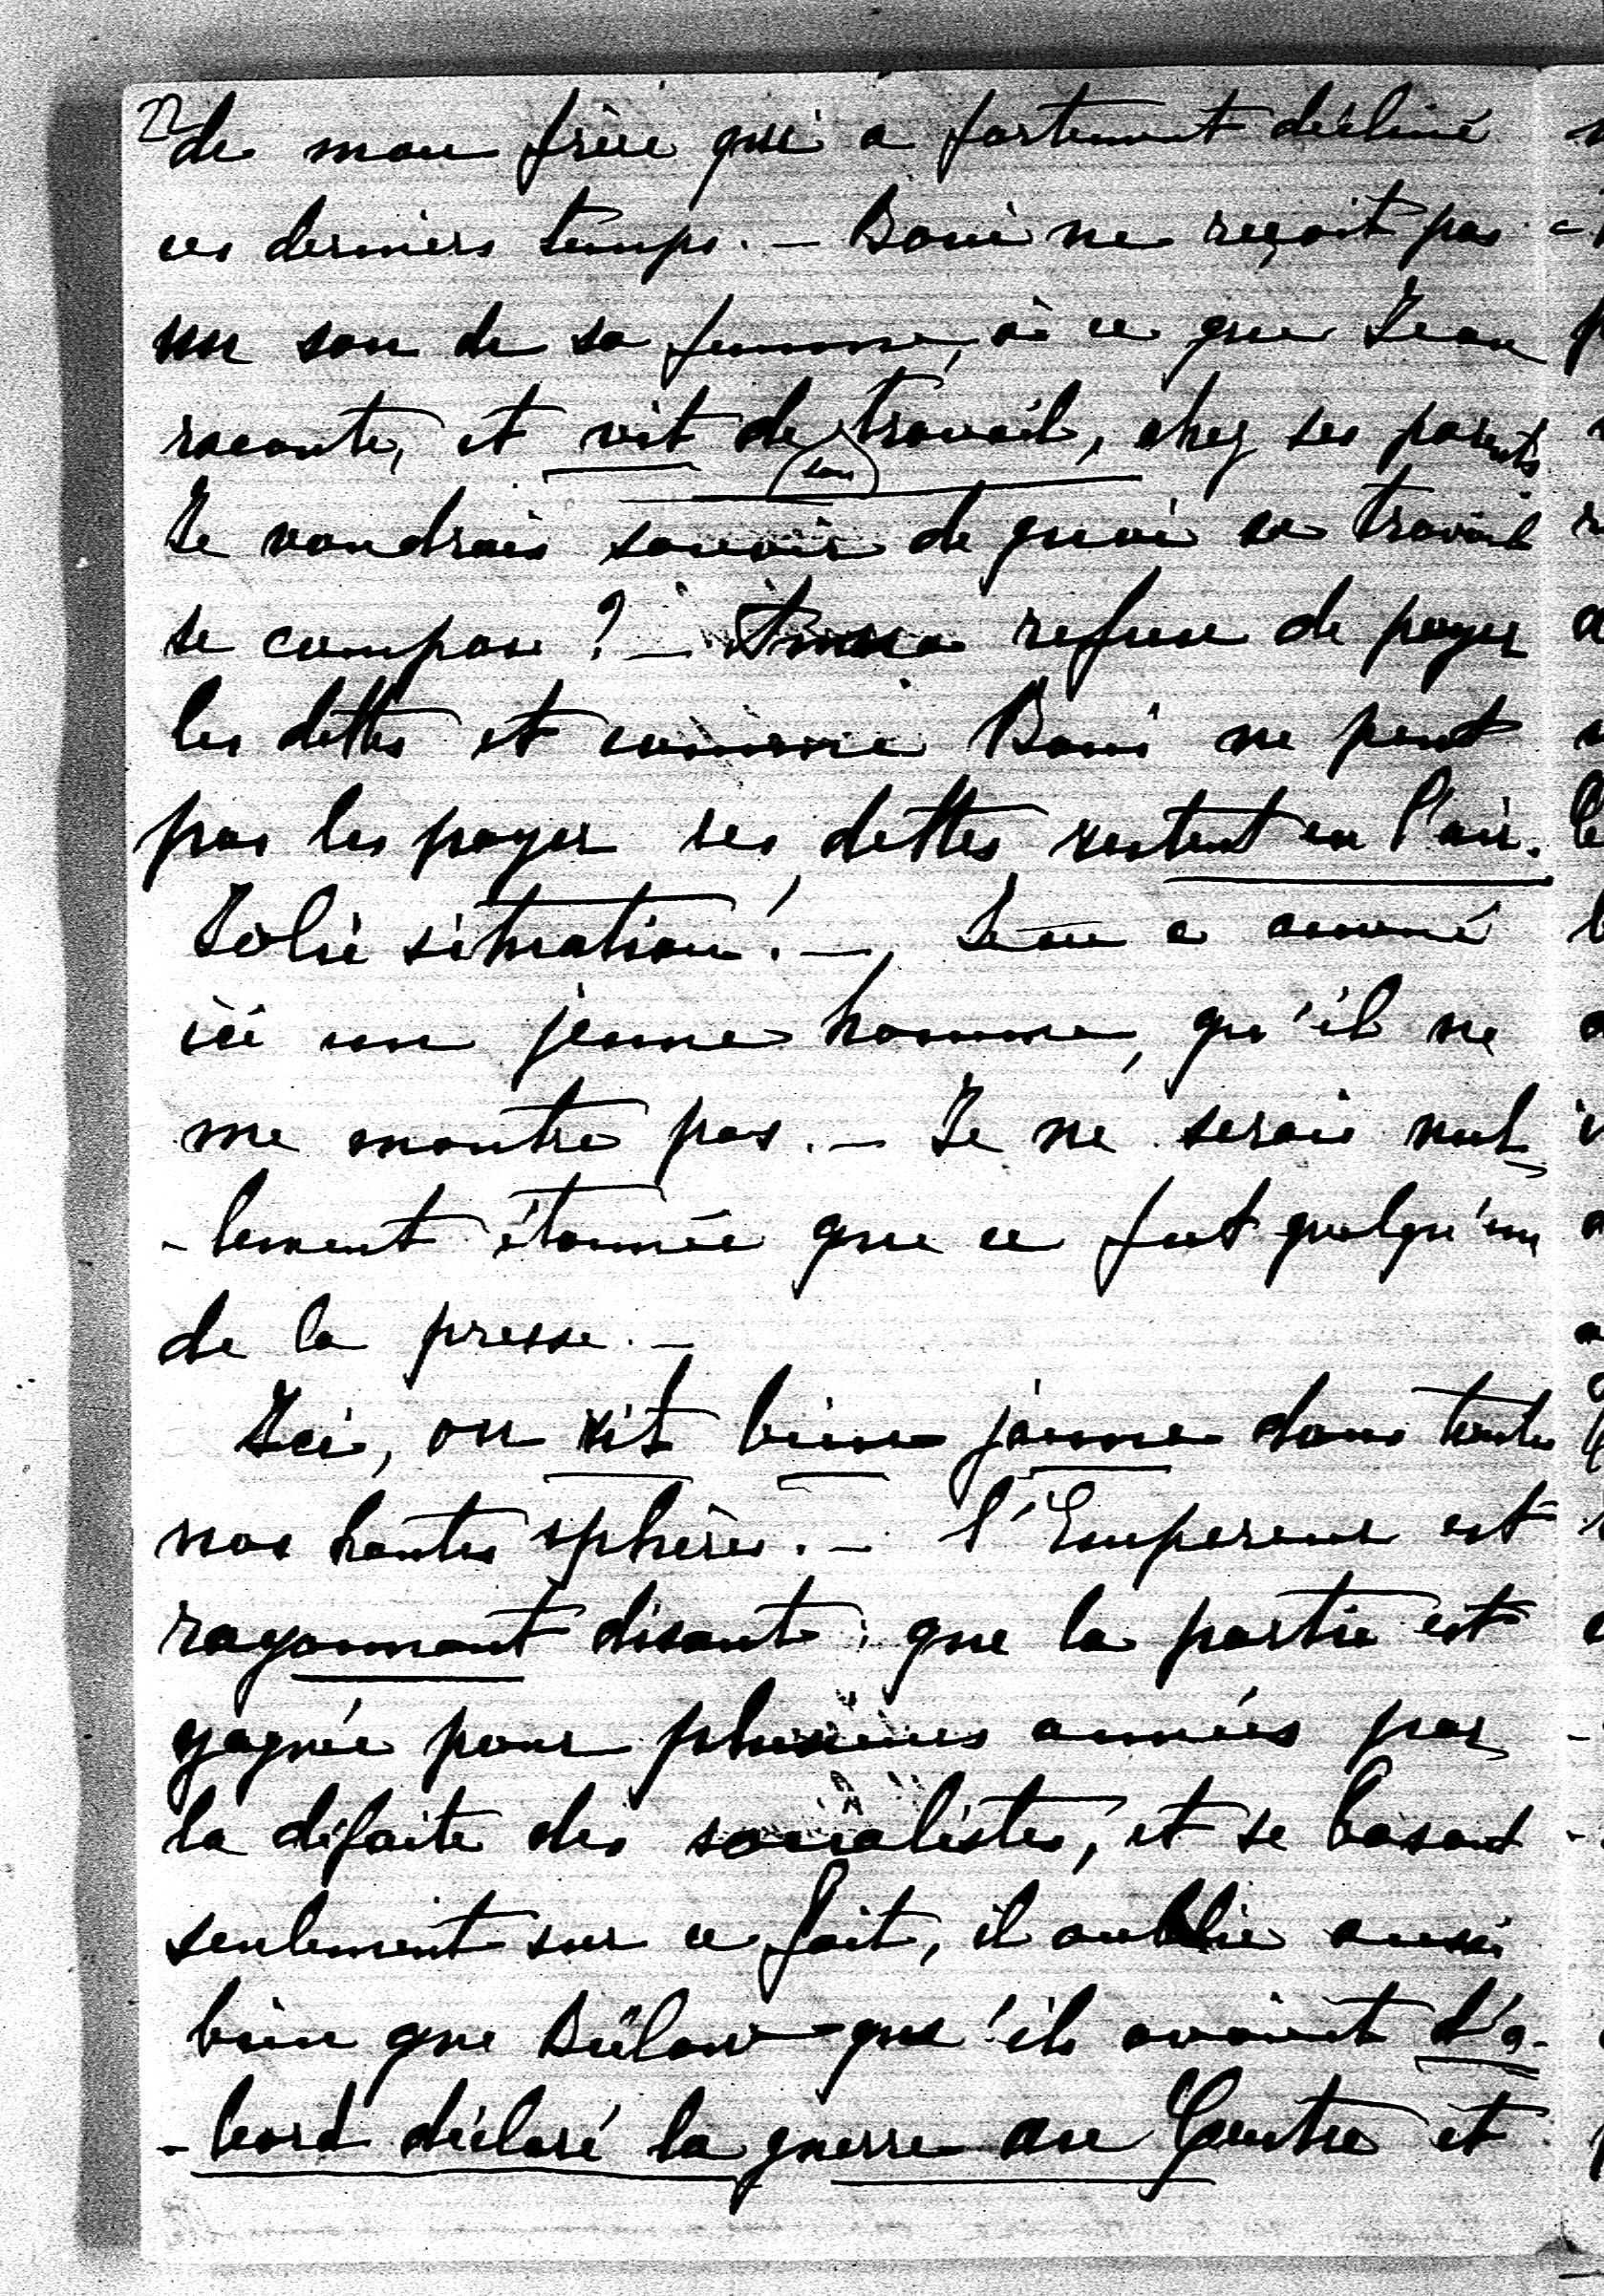 22
de mon frère qui a fortement décliné
ces derniers temps. — Boni ne reçoit pas
un sou de sa femme, à ce que Jean
raconte, et vit de (son) travail, chez ses parents
Je voudrais savoir de quoi ce travail
se compose ? — Anna refuse de payer
les dettes et comme Boni ne peut
pas les payer ses dettes restent en l'air.
Jolie situation ! — Jean a amené
ici un jeune homme, qu'il ne
me montre pas. — Je ne serais nul-
-lement étonnée que ce fut quelqu'un
de la presse. —
Ici, on rit bien jaune dans toutes
nos hautes sphères. — l'Empereur est
rayonnant disant que la partie est
gagnée pour plusieurs années par
la défaite des socialistes, et se basant
seulement sur ce fait, il oublie aussi
bien que Bülow qu'ils avaient d'a-
-bord déclaré la guerre au Centre et